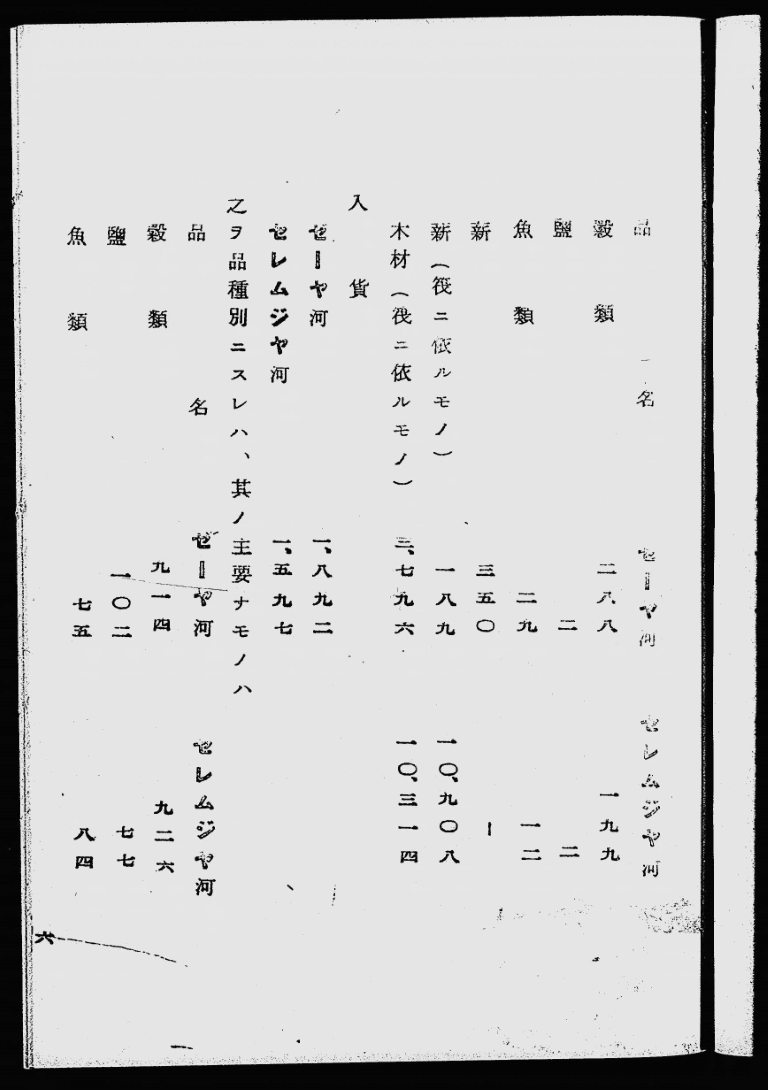 品名 ゼーヤ河 セレムジヤ河
穀類 二八八 一九九
鹽 二 二
魚類 二九 一二
薪 三五〇 ー
薪(筏ニ依ルモノ) 一八九 一〇、九〇八
木材(筏ニ依ルモノ) 三、七九六 一〇、三一四
入貨
ゼーヤ河 一、八九二
セレムジヤ河 一、五九七
之ヲ品種別ニスレハ、其ノ主要ナモノハ
品名 ゼーヤ河 セレムジヤ河
穀類 九一四 九二六
鹽 一〇二 七七
魚類 七五 八四
六